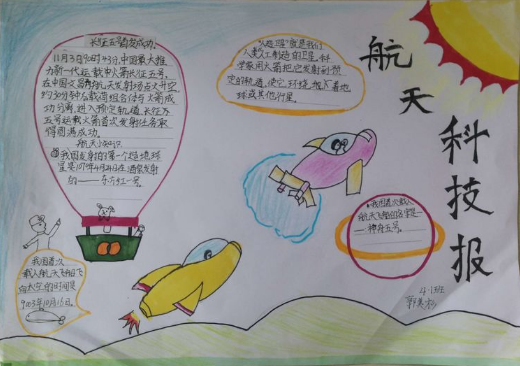 航天科技报
长征五号首发成功
11月3日20时43分,中国最大推
力新一代运载火箭长征五号,
在中国文昌航天发射场点火升空
约30分钟后载荷组合体与火箭成
功分离,进入预定轨道,长征
五号运载火箭首次发射任务取
得圆满成功。
航天小知识
我国发射的第一个
星是1970年4月24日在酒泉发射
的——东方红一号。
我国首次
载人航天飞船飞
向太空的时间是
2003年10月15日。
"人造卫星"就是我们
人类人工制造的卫星。科
学家用火箭把它发射到预
定的轨道,使它环绕着地
球或其他行星。
我国首次载人
航天飞船的名字是—
—神舟五号。
4.13班